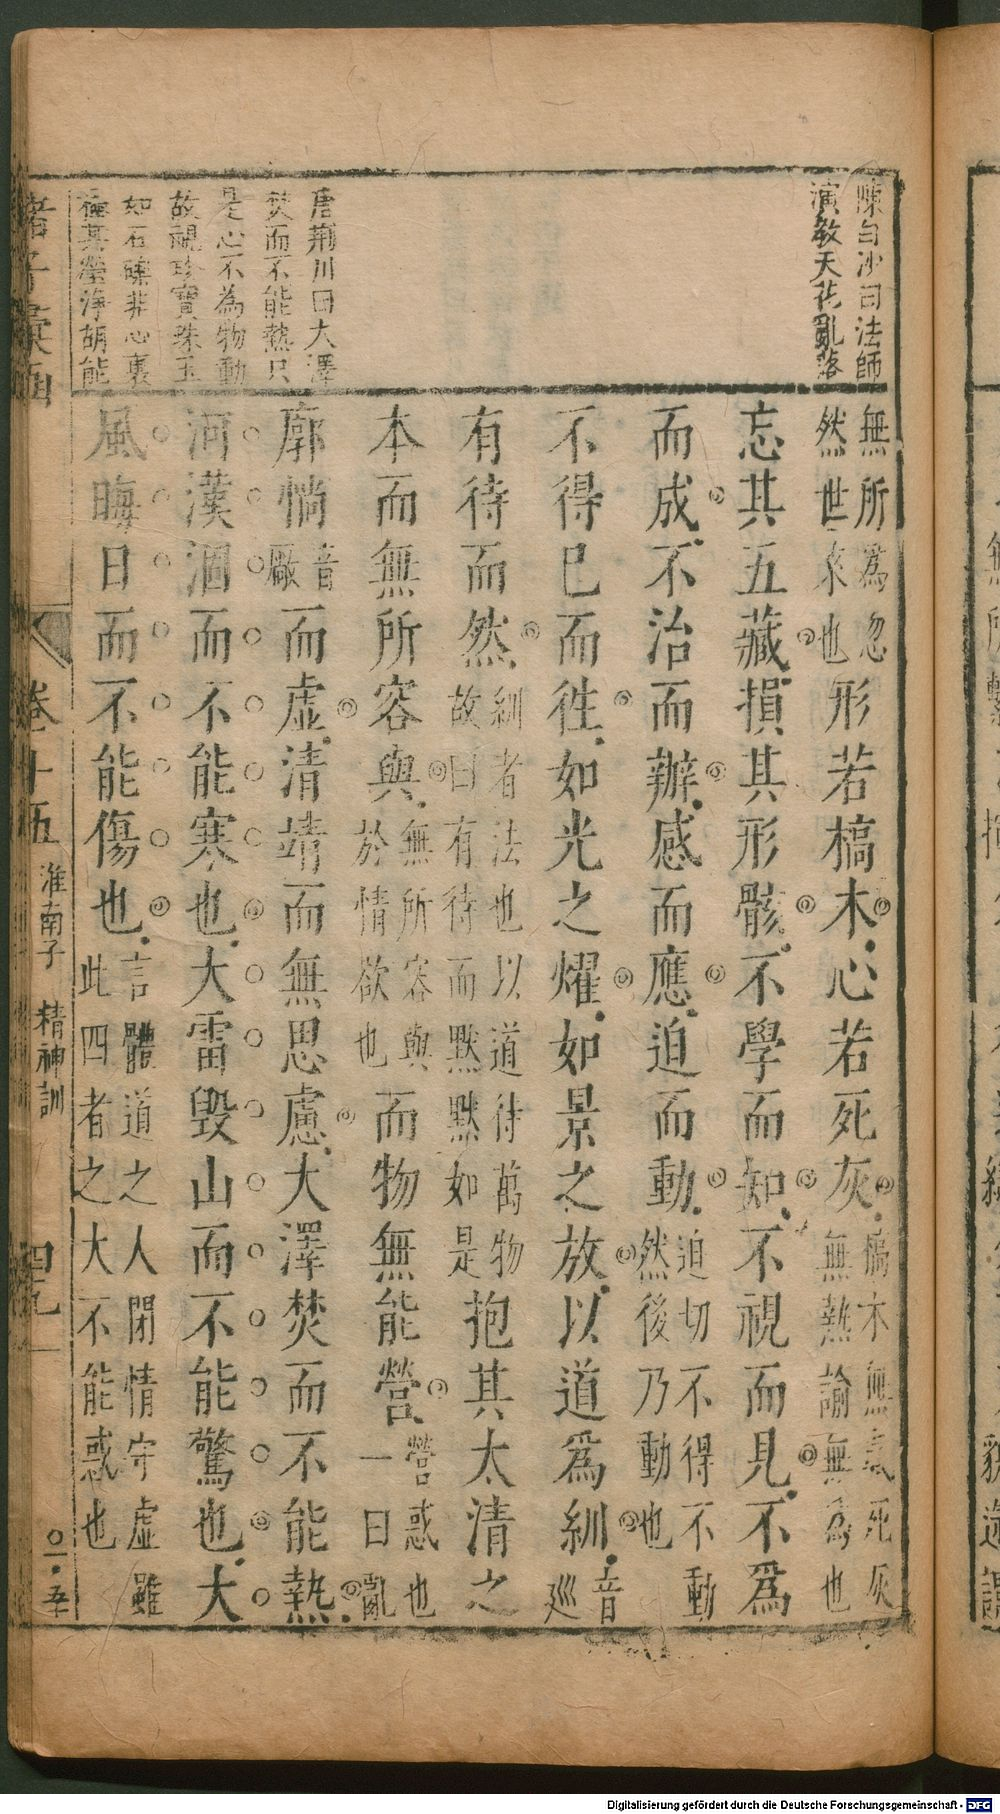 陳白沙曰法師
演教天花亂落
唐荆川曰大澤
焚而不能熱只
是心不為物動
故視珍寶珠玉
如石礫非心裏
極其瑩淨胡能
無所為忽
然世來也形若槁木心若死灰槁木無氣死灰
無熱諭無為也
忘其五藏損其形骸不學而知不視而見不為
而成不治而辦感而應迫而動迫切不得不動
然後乃動也
不得已而徃如光之燿如景之放以道為紃音
巡
有待而然紃者法也以道待萬物
故曰有待而默默如是抱其太清之
本而無所容與無所容與
於情欲也而物無能營營惑也
一曰亂
廓惝音
厰而虛清靖而無思慮大澤焚而不能熱
河漢涸而不能寒也大雷毀山而不能驚也大
風晦日而不能傷也言體道之人閉情守虛雖
此四者之大不能惑也
諸子彙函
卷十五
淮南子
精神訓
四九
Digitalisierung gefördert durch die Deutsche Forschungsgemeinschaft - DFG